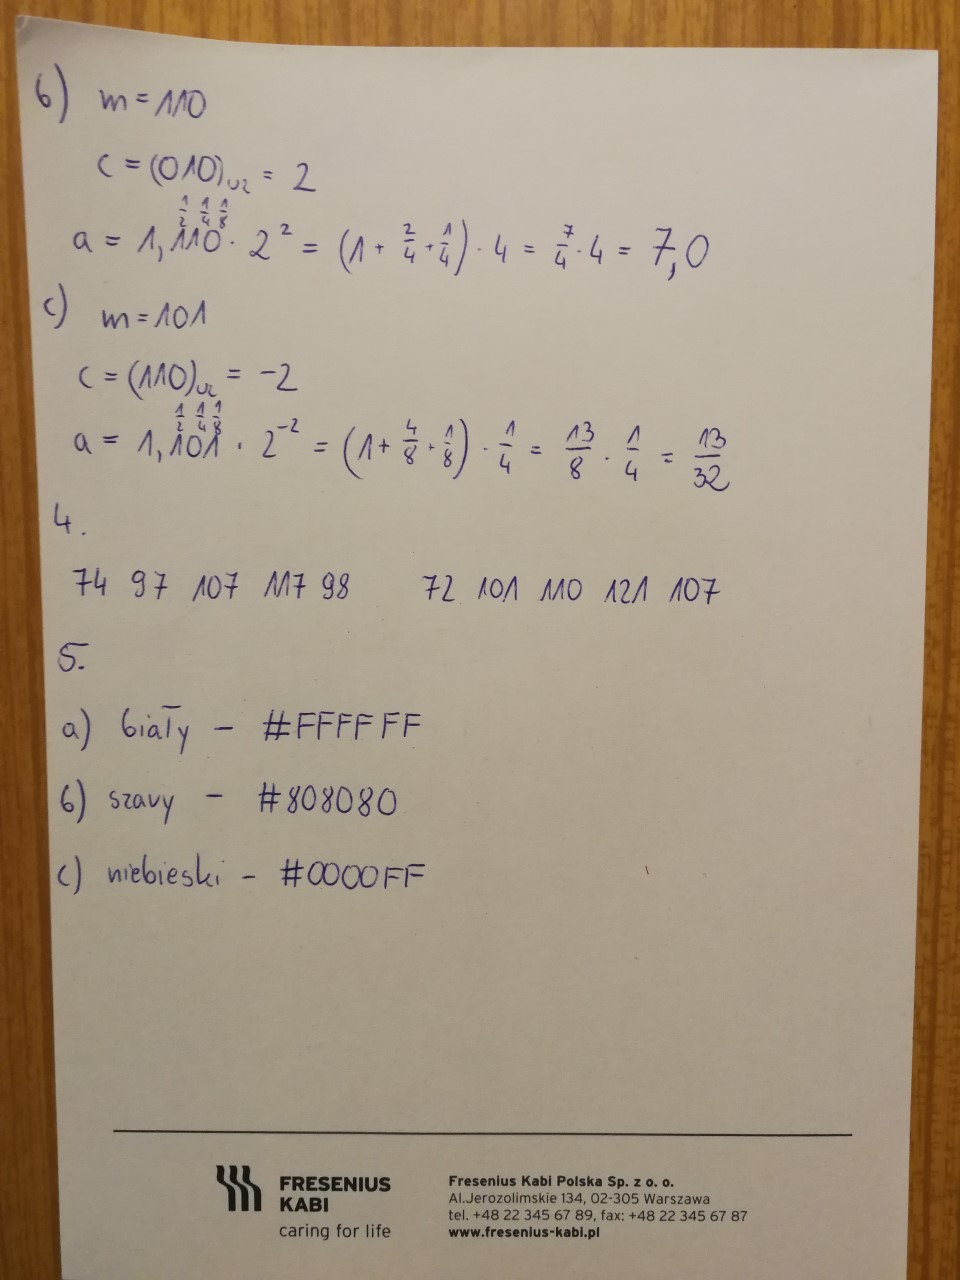 b) m = 110
c = (010)U2 = 2
1/2 1/4 1/8
a = 1,110 · 2² = (1 + 2/4 + 1/4) · 4 = 7/4 · 4 = 7,0
c) m = 101
c = (110)U2 = -2
1/2 1/4 1/8
a = 1,101 · 2⁻² = (1 + 4/8 + 1/8) · 1/4 = 13/8 · 1/4 = 13/32
4.
74 97 107 117 98 72 101 110 121 107
5.
a) biały - #FFFFFF
b) szary - #808080
c) niebieski - #0000FF
FRESENIUS
KABI
caring for life
Fresenius Kabi Polska Sp. z o. o.
Al.Jerozolimskie 134, 02-305 Warszawa
tel. +48 22 345 67 89, fax: +48 22 345 67 87
www.fresenius-kabi.pl